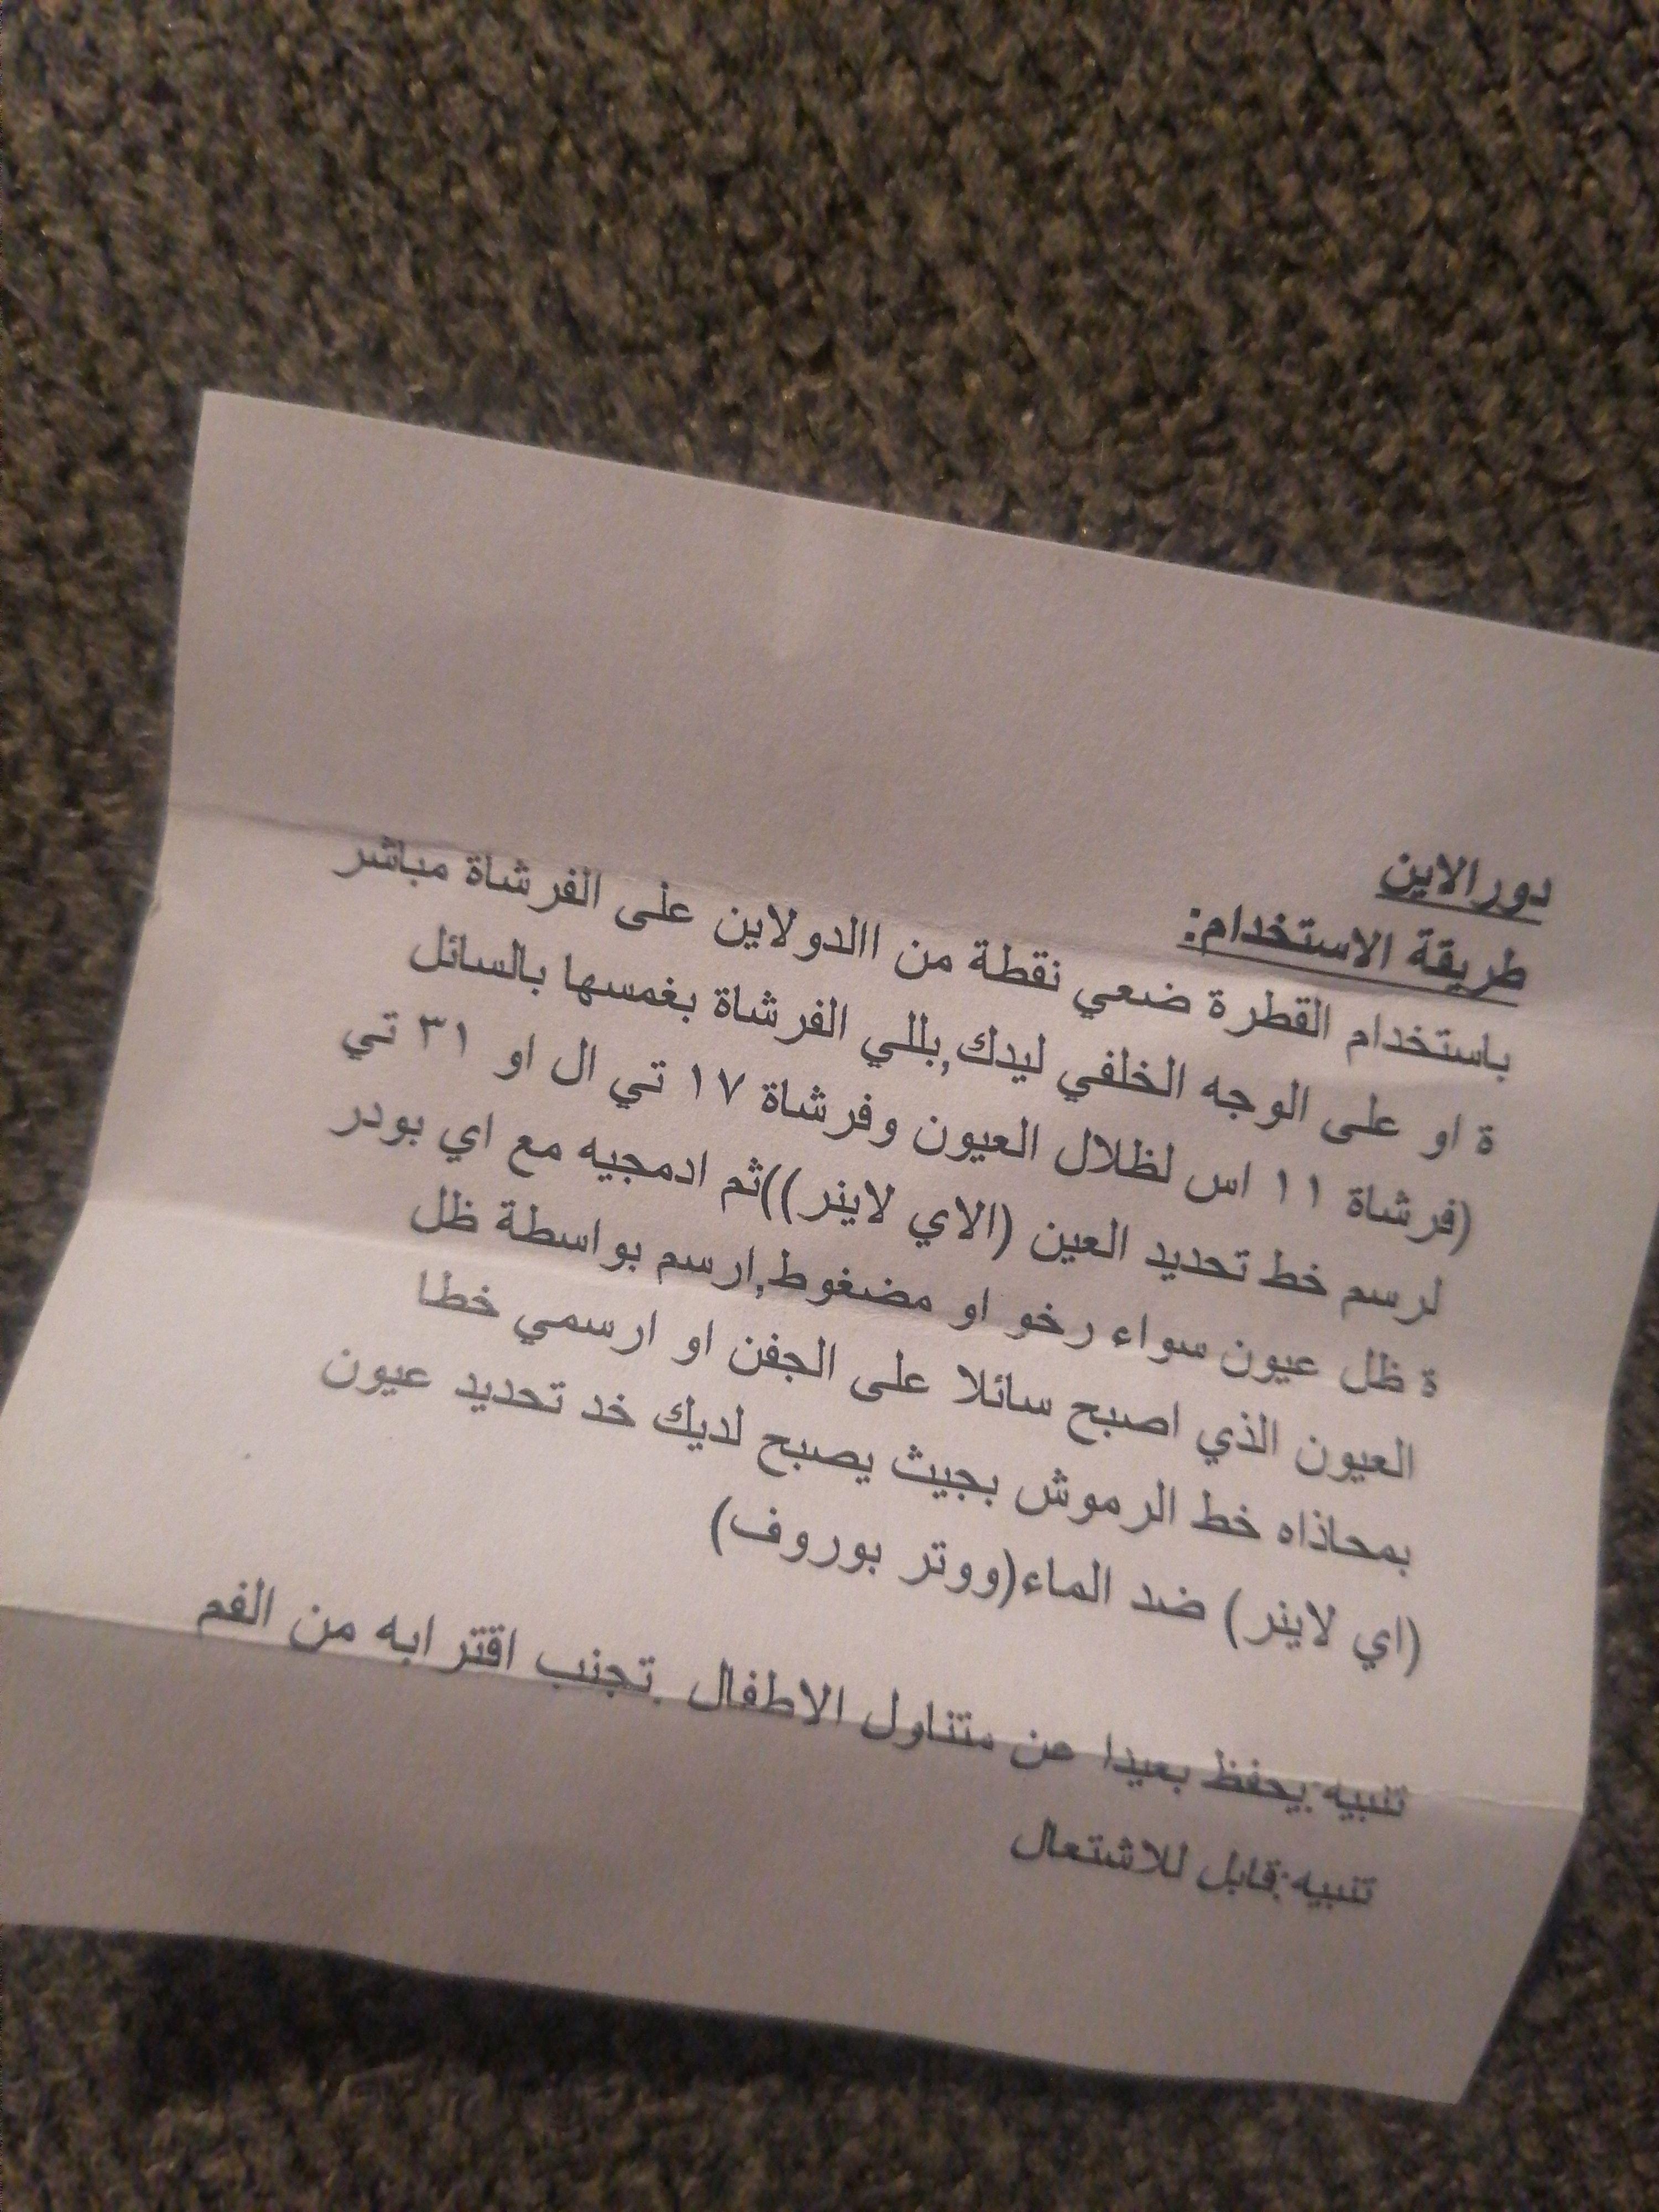 دورالاين
طريقة الاستخدام:
باستخدام القطرة ضعي نقطة من االدولاين على الفرشاة مباشر
ة او على الوجه الخلفي ليدك,بللي الفرشاة بغمسها بالسائل
(فرشاة ١١ اس لظلال العيون وفرشاة ١٧ تي ال او ٣١ تي
لرسم خط تحديد العين (الاي لاينر))ثم ادمجيه مع اي بودر
ة ظل عيون سواء رخو او مضغوط,ارسم بواسطة ظل
العيون الذي اصبح سائلا على الجفن او ارسمي خطا
بمحاذاه خط الرموش بجيث يصبح لديك خد تحديد عيون
(اي لاينر) ضد الماء(ووتر بوروف)
تنبيه:يحفظ بعيدا عن متناول الاطفال .تجنب اقترابه من الفم
تنبيه:قابل للاشتعال